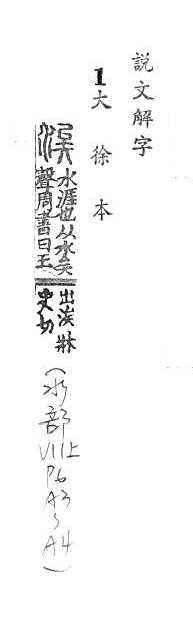 説文解字
1大徐本
涘
水涯也从水矣
聲周書曰王
出涘牀
史切
(水部
VIII上
P6
A3
A4)